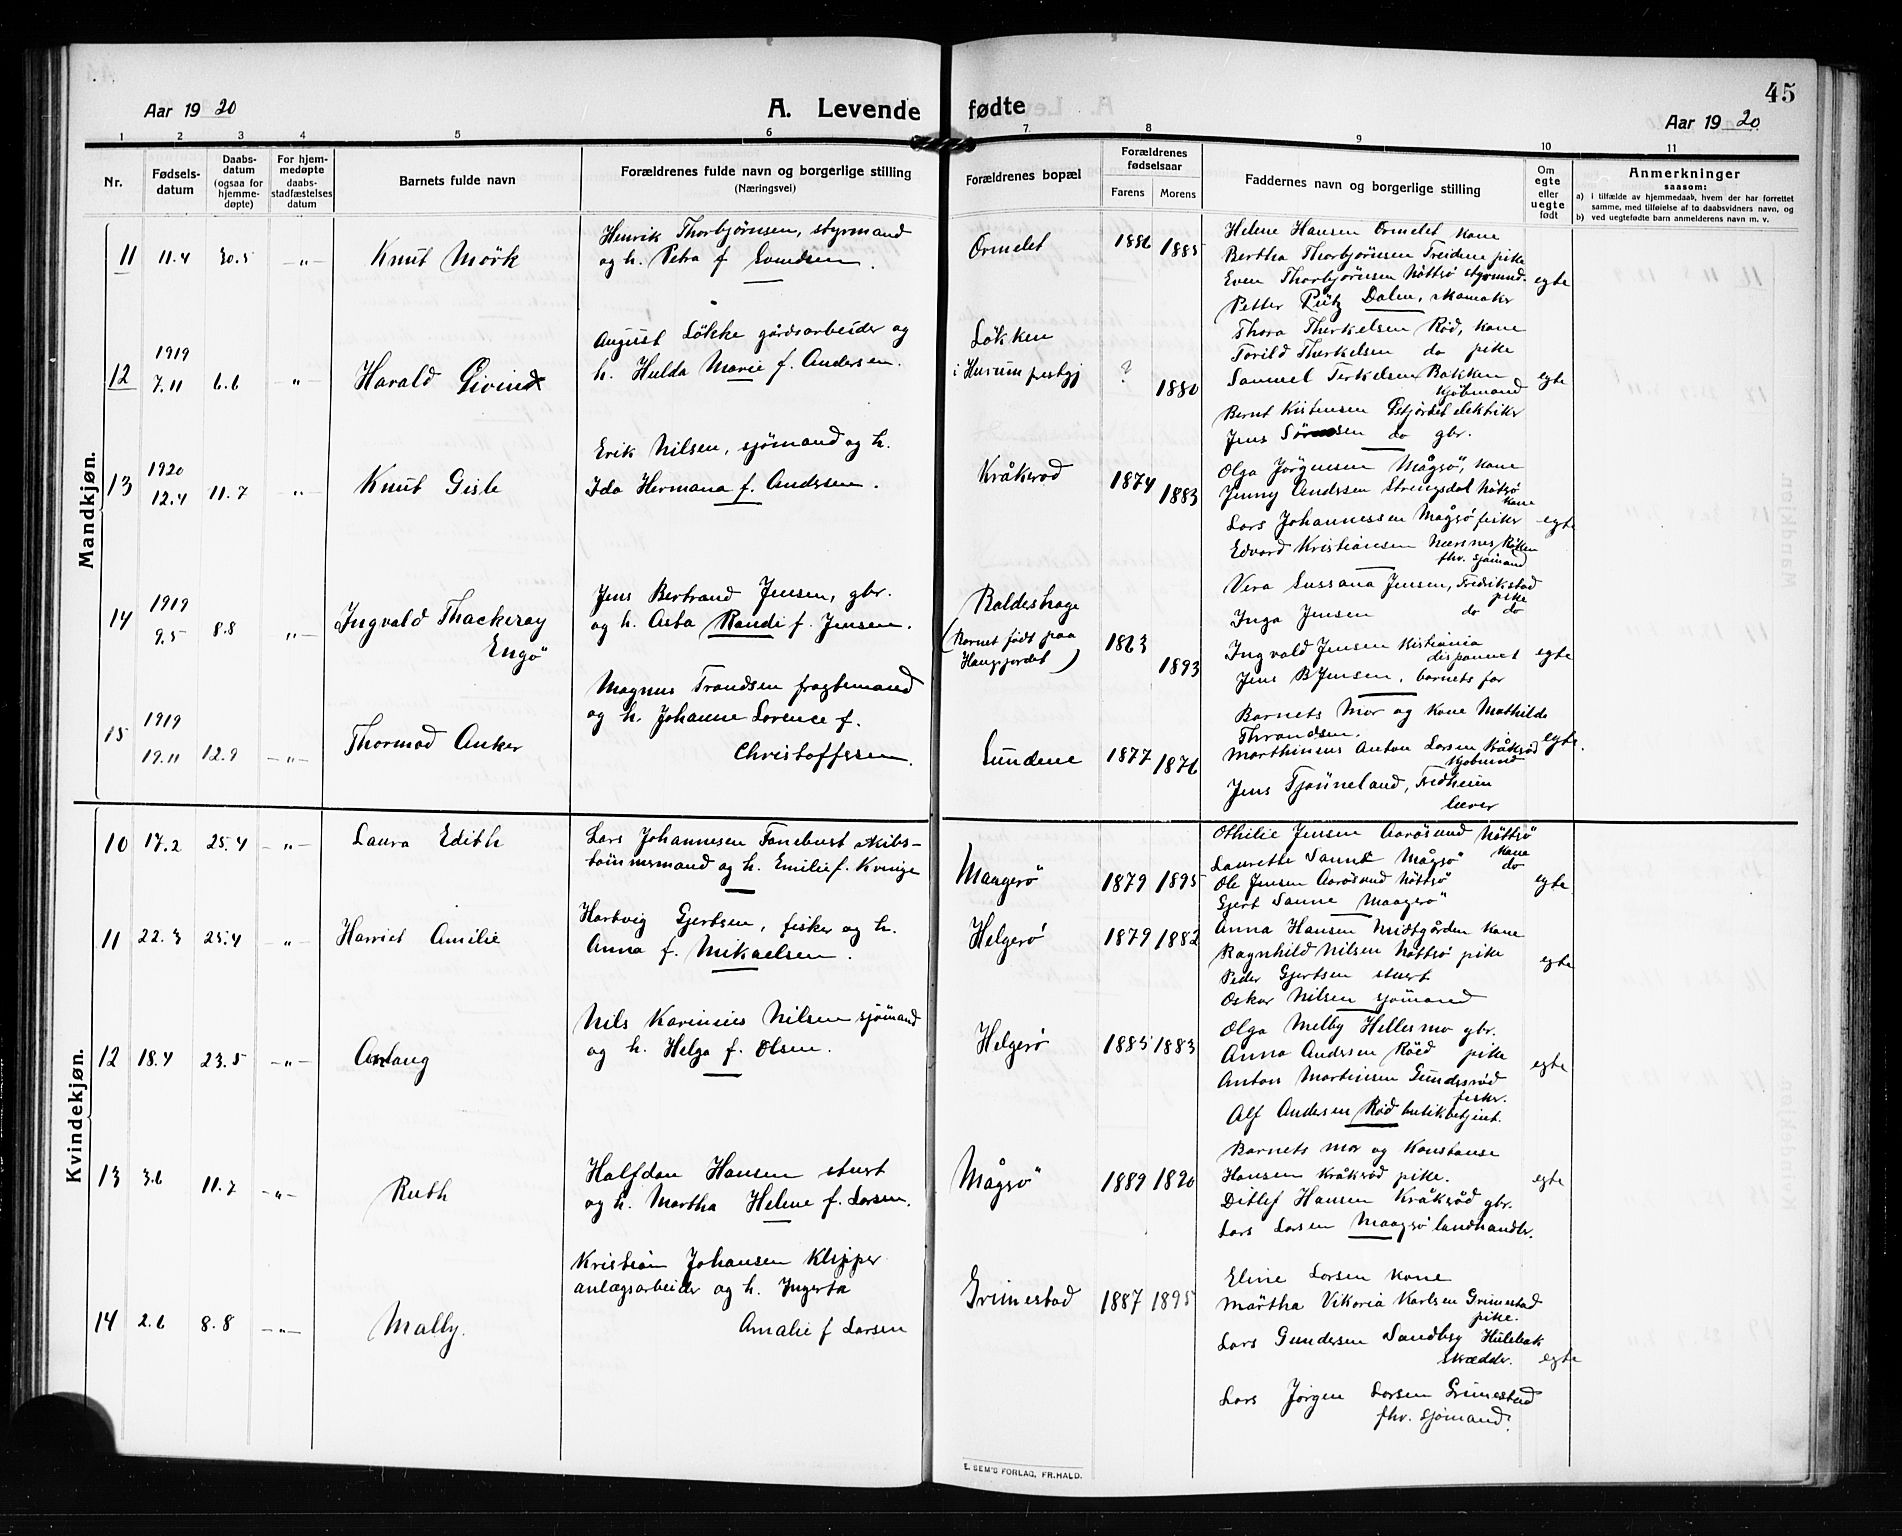 45
Aar 1920
A. Levende fødte
Aar 1920
1 2 3 4 5 6 7 8 9 10 11
Nr.
Fødsels-
datum
Daabs-
datum
(ogsaa for
hjemme-
døpte)
For hjem-
medøpte
daabs-
stadfæstelses
datum
Barnets fulde navn
Forældrenes fulde navn og borgerlige stilling
(Næringsvei)
Forældrenes bopæl
Forældrenes
fødselsaar
Farens Morens
Faddernes navn og borgerlige stilling
Om
egte
eller
uegte
født
Anmerkninger
saasom:
a) i tilfælde av hjemmedaab, hvem der har forrettet
samme, med tilføielse af to daabsvidners navn, og
b) ved uegtefødte barn anmelderens navn m. v.
Mandkjøn.
11 11.4 30.5 -„- Knut Mörk
Henrik Thorbjørnsen, styrmand
og h. Petra f Svendsen.
Ormelet 1886 1885
Helene Hansen Ormelet kone
Bertha Thorbjörnsen Treidene pike
Even Thorbjörnsen Nöttrö styrmnd.
Petter Pütz Dalen, skomaker
egte
12 1919
7.11 6.6 „- Harald Eivind
August Lökke gårdsarbeider og
h. Hulda Marie f. Andersen.
Lökken
i Hurum prestgj ? 1880
Thora Therkelsen Röd, kone
Torild Therkelsen do pike
Samuel Terkelsen Bakken
kjöbmand
Bernt Kristensen Østjordet elektriker
Jens Sörensen do gbr.
egte
13 1920
12.4 11.7 -„- Knut Gisle
Erik Nilsen, sjömand og h.
Ida Hermana f. Andersen.
Kråkeröd 1874 1883
Olga Jörgensen Mågerö, kone
Jenny Andersen Strengsdal Nötrö
kone
Lars Johannessen Mågerö fisker
Edvard Kristiansen Nærsnes Röken
fhv. sjömand
egte
14 1919
9.5 8.8 „- Ingvald Thackeray
Engö
Jens Bertrand Jensen, gbr.
og h. Asta Randi f. Jensen.
Boldeshage
(Barnet født paa
Haugjordet) 1863 1893
Vera Sussana Jensen, Fredrikstad
pike
Inga Jensen do do
Ingvald Jensen Kristiania
disponent
Jens B Jensen, barnets far
egte
15 1919
19.11 12.9 -„- Thormod Anker
Magnus Trondsen fragtemand
og h. Johanne Lorence f.
Christoffersen.
Sundene 1877 1876
Barnets Mor og Kone Mathilde
Throndsen.
Marthinius Anton Larsen Kråkröd
kjöbmnd
Jens Tjönneland, Fredheim
lærer
egte.
Kvindekjøn.
10 17.2 25.4 -„- Laura Edith
Lars Johannesen Fanebust skibs-
tömmermand og h. Emilie f. Kvinge
Maagerö 1879 1895
Othilie Jensen Aarösund Nöttrö
kone
Laurette Sanne Mågrö do
Ole Jensen Aarösund Nöttrö
Gjert Sanne Maagerö
egte
11 22.3 25.4 „- Harriet Amilie
Hartvig Gjertsen, fisker og h.
Anna f. Mikaelsen.
Helgerö 1879 1882
Anna Hansen Midtgården kone
Ragnhild Nilsen Nöttrö pike
Peder Gjertsen stuert
Oskar Nilsen sjömand
egte
12 18.4 23.5 -„- Aslaug
Nils Karinius Nilsen sjömand
og h. Helga f. Olsen.
Helgerö 1885 1883
Olga Melby Hellesmo gbr.
Anna Andersen Röed pike
Anton Martinsen Gundersröd
fisker.
Alf Andersen Röd butikbetjent.
egte
13 3.6 11.7 -„- Ruth
Halfdan Hansen stuert
og h. Martha Helene f. Larsen.
Mågerö 1889 1890
Barnets mor og Konstanse
Hansen Kråkeröd pike.
Ditlef Hansen Kråkeröd gbr.
Lars Larsen Maagerö landhandler.
egte
14 2.6 8.8 -„- Mally.
Kristian Johansen Klipper
anlægsarbeider og h. Ingerta
Amalie f Larsen
Grimestad 1887 1895
Eline Larsen kone
Märtha Vikoria Karlsen Grimestad
pike.
Lars Gundersen Sandberg Hulebak
skrædder.
Lars Jörgen Larsen Grimestad
fhv. sjömand.
egte
E. SEM'S FORLAG, FR.HALD.